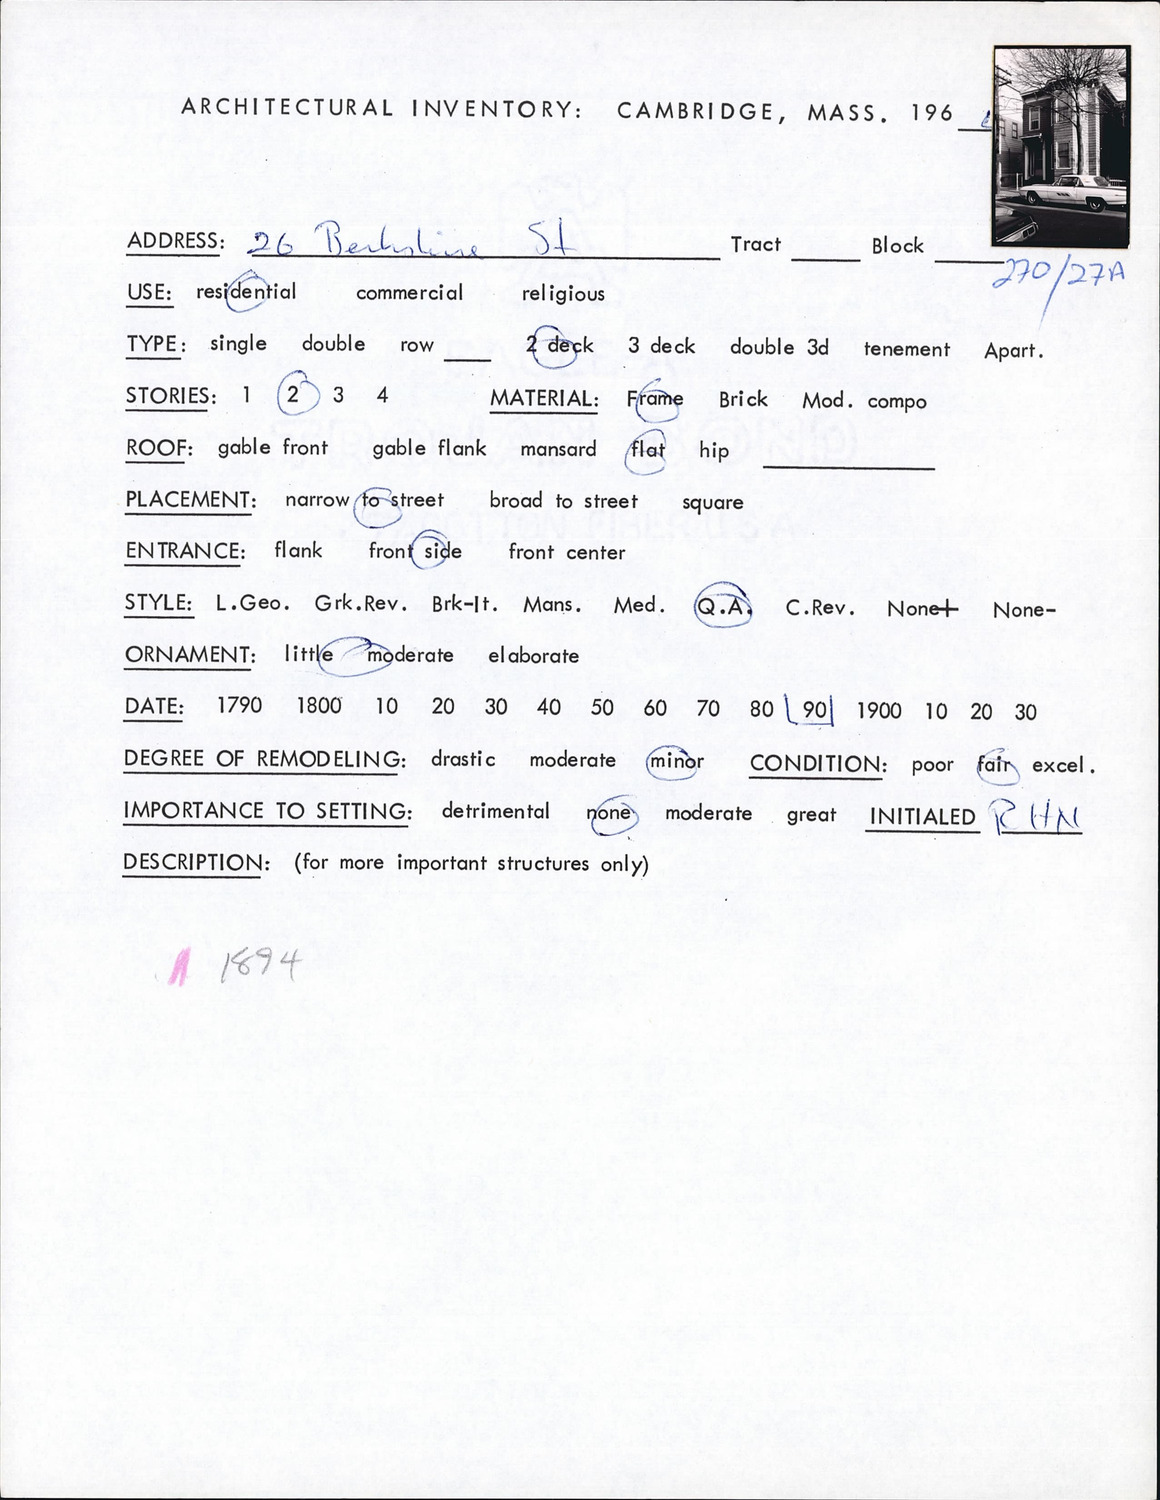 ARCHITECTURAL INVENTORY: CAMBRIDGE, MASS. 196
ADDRESS: 26 Berkshire St Tract ____ Block ____
270/27A
USE: residential commercial religious
TYPE: single double row ____ 2 deck 3 deck double 3d tenement Apart.
STORIES: 1 2 3 4 MATERIAL: Frame Brick Mod. compo
ROOF: gable front gable flank mansard flat hip ____
PLACEMENT: narrow to street broad to street square
ENTRANCE: flank front side front center
STYLE: L.Geo. Grk.Rev. Brk-It. Mans. Med. Q.A. C.Rev. None+ None-
ORNAMENT: little moderate elaborate
DATE: 1790 1800 10 20 30 40 50 60 70 80 90 1900 10 20 30
DEGREE OF REMODELING: drastic moderate minor CONDITION: poor fair excel.
IMPORTANCE TO SETTING: detrimental none moderate great INITIALED RHN
DESCRIPTION: (for more important structures only)
1894